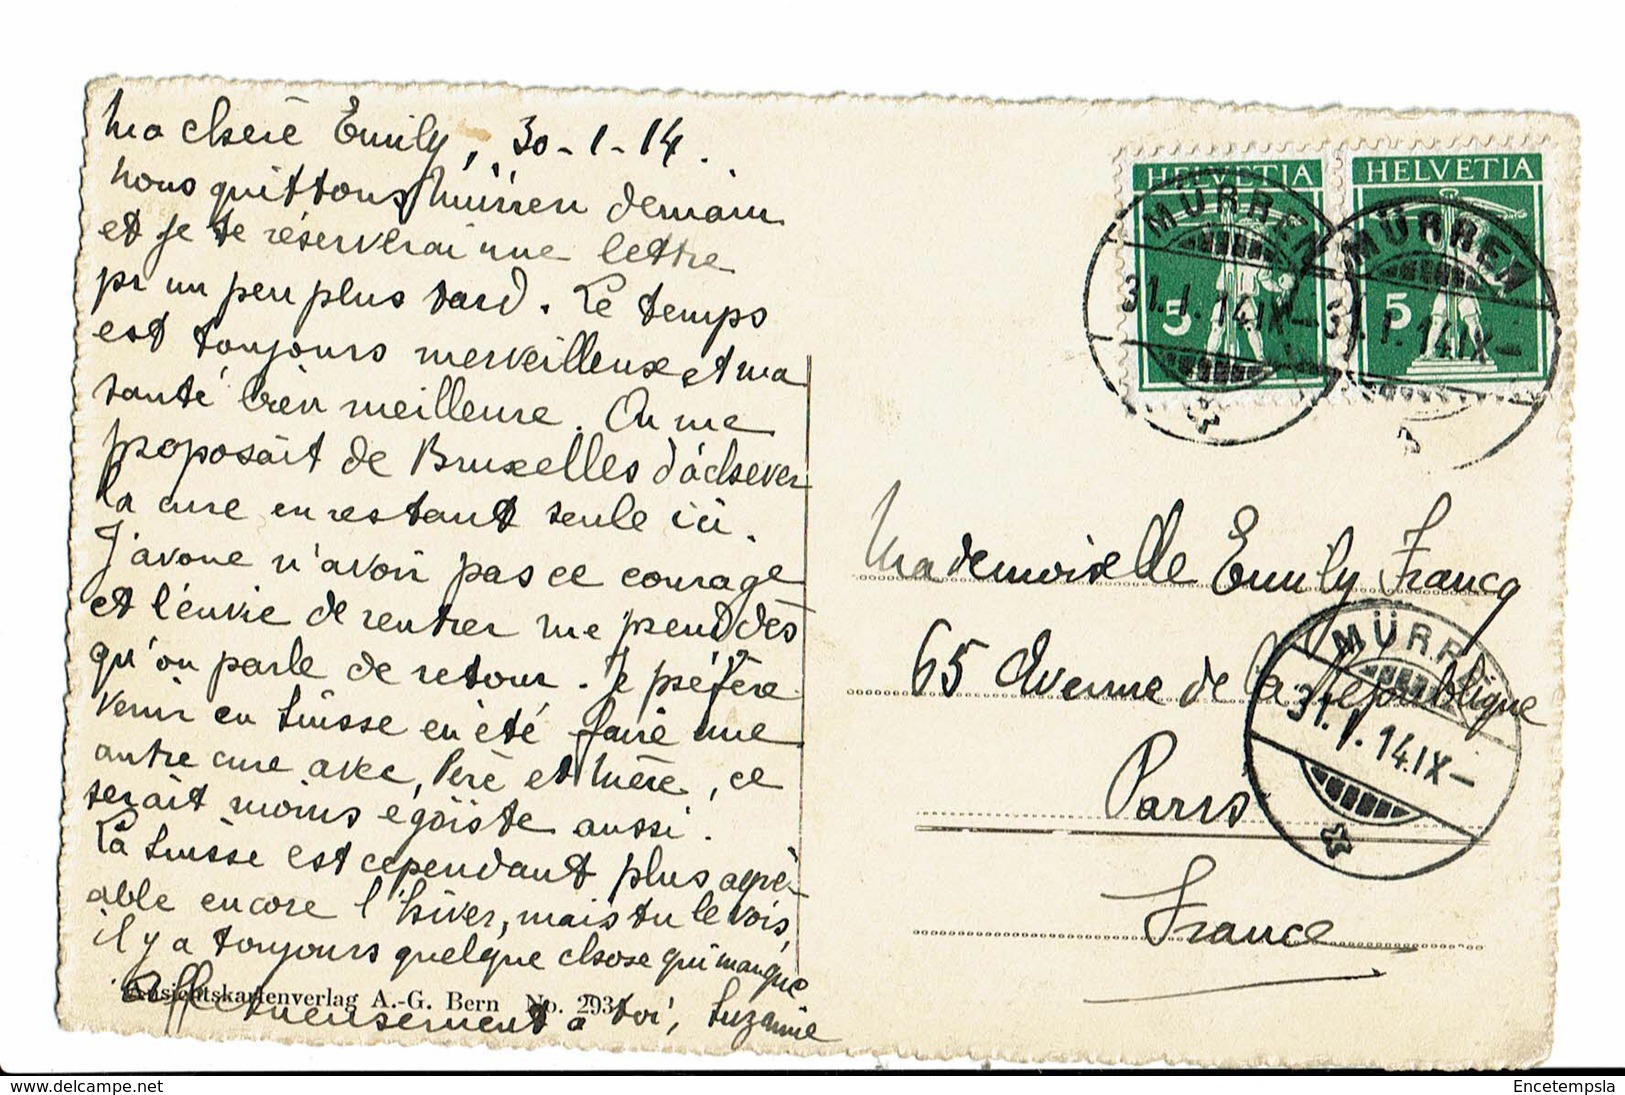 Ma chère Emily, 30-1-14.
nous quittons Mürren demain
et je te réserverai une lettre
pr un peu plus tard. Le temps
est toujours merveilleux et ma
santé bien meilleure. On me
proposait de Bruxelles d'achever
la cure en restant seule ici.
J'avoue n'avoir pas ce courage
et l'envie de rentrer me prend dès
qu'on parle de retour. Je préfère
venir en Suisse en été faire une
autre cure avec Père et Mère, ce
serait moins égoïste aussi.
La Suisse est cependant plus agré-
able encore l'hiver, mais tu le vois,
il y a toujours quelque chose qui manque
Affectueusement à toi, Suzanne
Ansichtskartenverlag A.-G. Bern No. 293
HELVETIA HELVETIA
5 5
MÜRREN MÜRREN
31.I.14.IX– 31.I.14.IX–
Mademoiselle Emily Francq
65 Avenue de la République
Paris
France
MÜRREN
31.I.14.IX–
Encetempsla